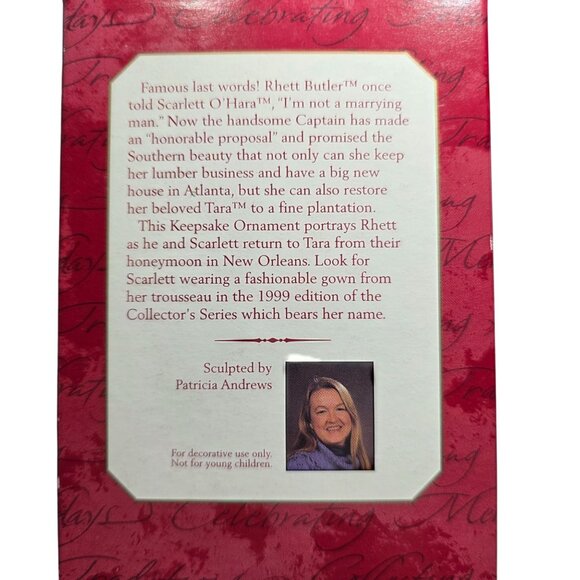 days Celebrating
Famous last words! Rhett Butler™ once
told Scarlett O'Hara™, "I'm not a marrying
man." Now the handsome Captain has made
an "honorable proposal" and promised the
Southern beauty that not only can she keep
her lumber business and have a big new
house in Atlanta, but she can also restore
her beloved Tara™ to a fine plantation.
This Keepsake Ornament portrays Rhett
as he and Scarlett return to Tara from their
honeymoon in New Orleans. Look for
Scarlett wearing a fashionable gown from
her trousseau in the 1999 edition of the
Collector's Series which bears her name.
Sculpted by
Patricia Andrews
For decorative use only.
Not for young children.
days Celebrating